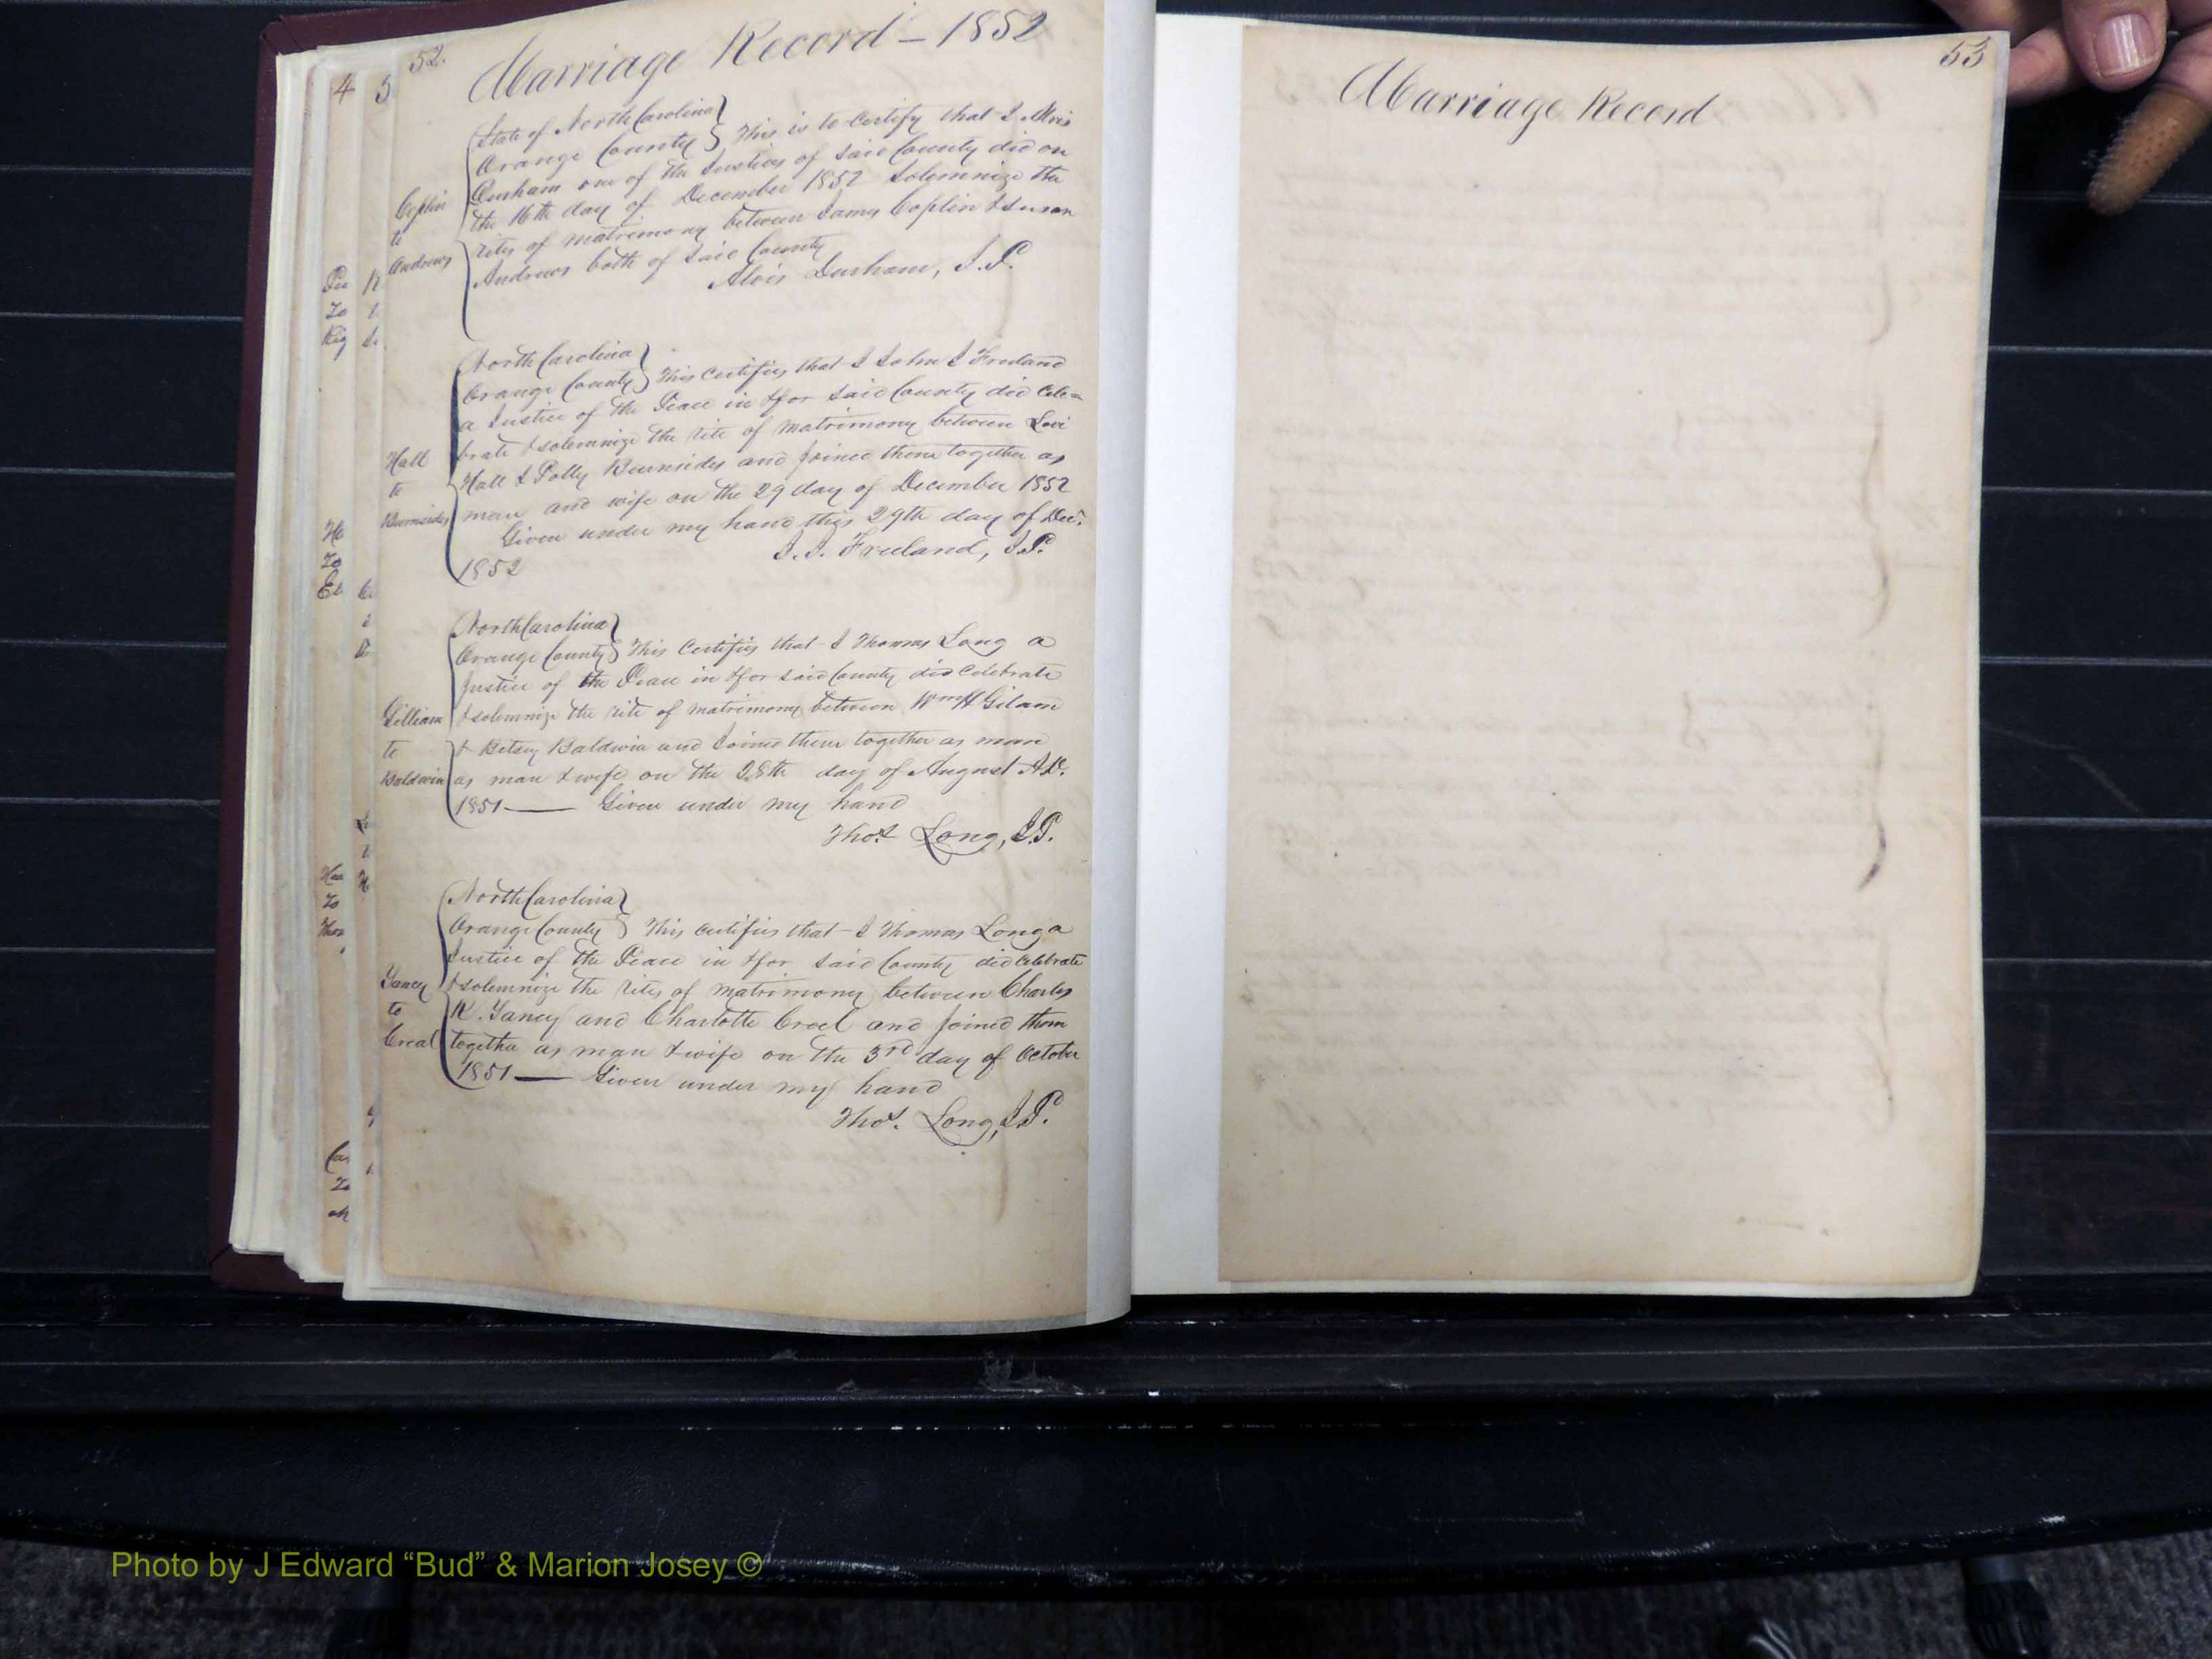 52.
Marriage Record - 1852
State of North Carolina
Orange County } This is to certify that I Alvis
Durham one of the Justices of said County did on
the 16th day of December 1852 solemnize the
rites of matrimony between James Coplin & Susan
Andrews both of said County
Alvis Durham, J.P.
Coplin
to
Andrews
North Carolina
Orange County } This certifies that I John J Freeland
a Justice of the Peace in & for said County did cele=
brate & solemnize the rite of matrimony between Levi
Hall & Polly Burnsides and joined them together as
man and wife on the 29 day of December 1852
Given under my hand this 29th day of Dec.
1852
J.J. Freeland, J.P.
Hall
to
Burnsides
North Carolina
Orange County } This certifies that I Thomas Long a
Justice of the Peace in & for said County did celebrate
& solemnize the rite of matrimony between Wm H Gilam
& Betsey Baldwin and joined them together as man
as man & wife on the 28th day of August A.D.
1851 — Given under my hand
Thos. Long, J.P.
Gilliam
to
Baldwin
North Carolina
Orange County } This certifies that I Thomas Long a
Justice of the Peace in & for said County did celebrate
& solemnize the rites of matrimony between Charles
K. Yancy and Charlotte Creel and joined them
together as man & wife on the 3rd day of October
1851 — Given under my hand
Thos. Long, J.P.
Yancy
to
Creal
53
Marriage Record
Photo by J Edward “Bud” & Marion Josey ©